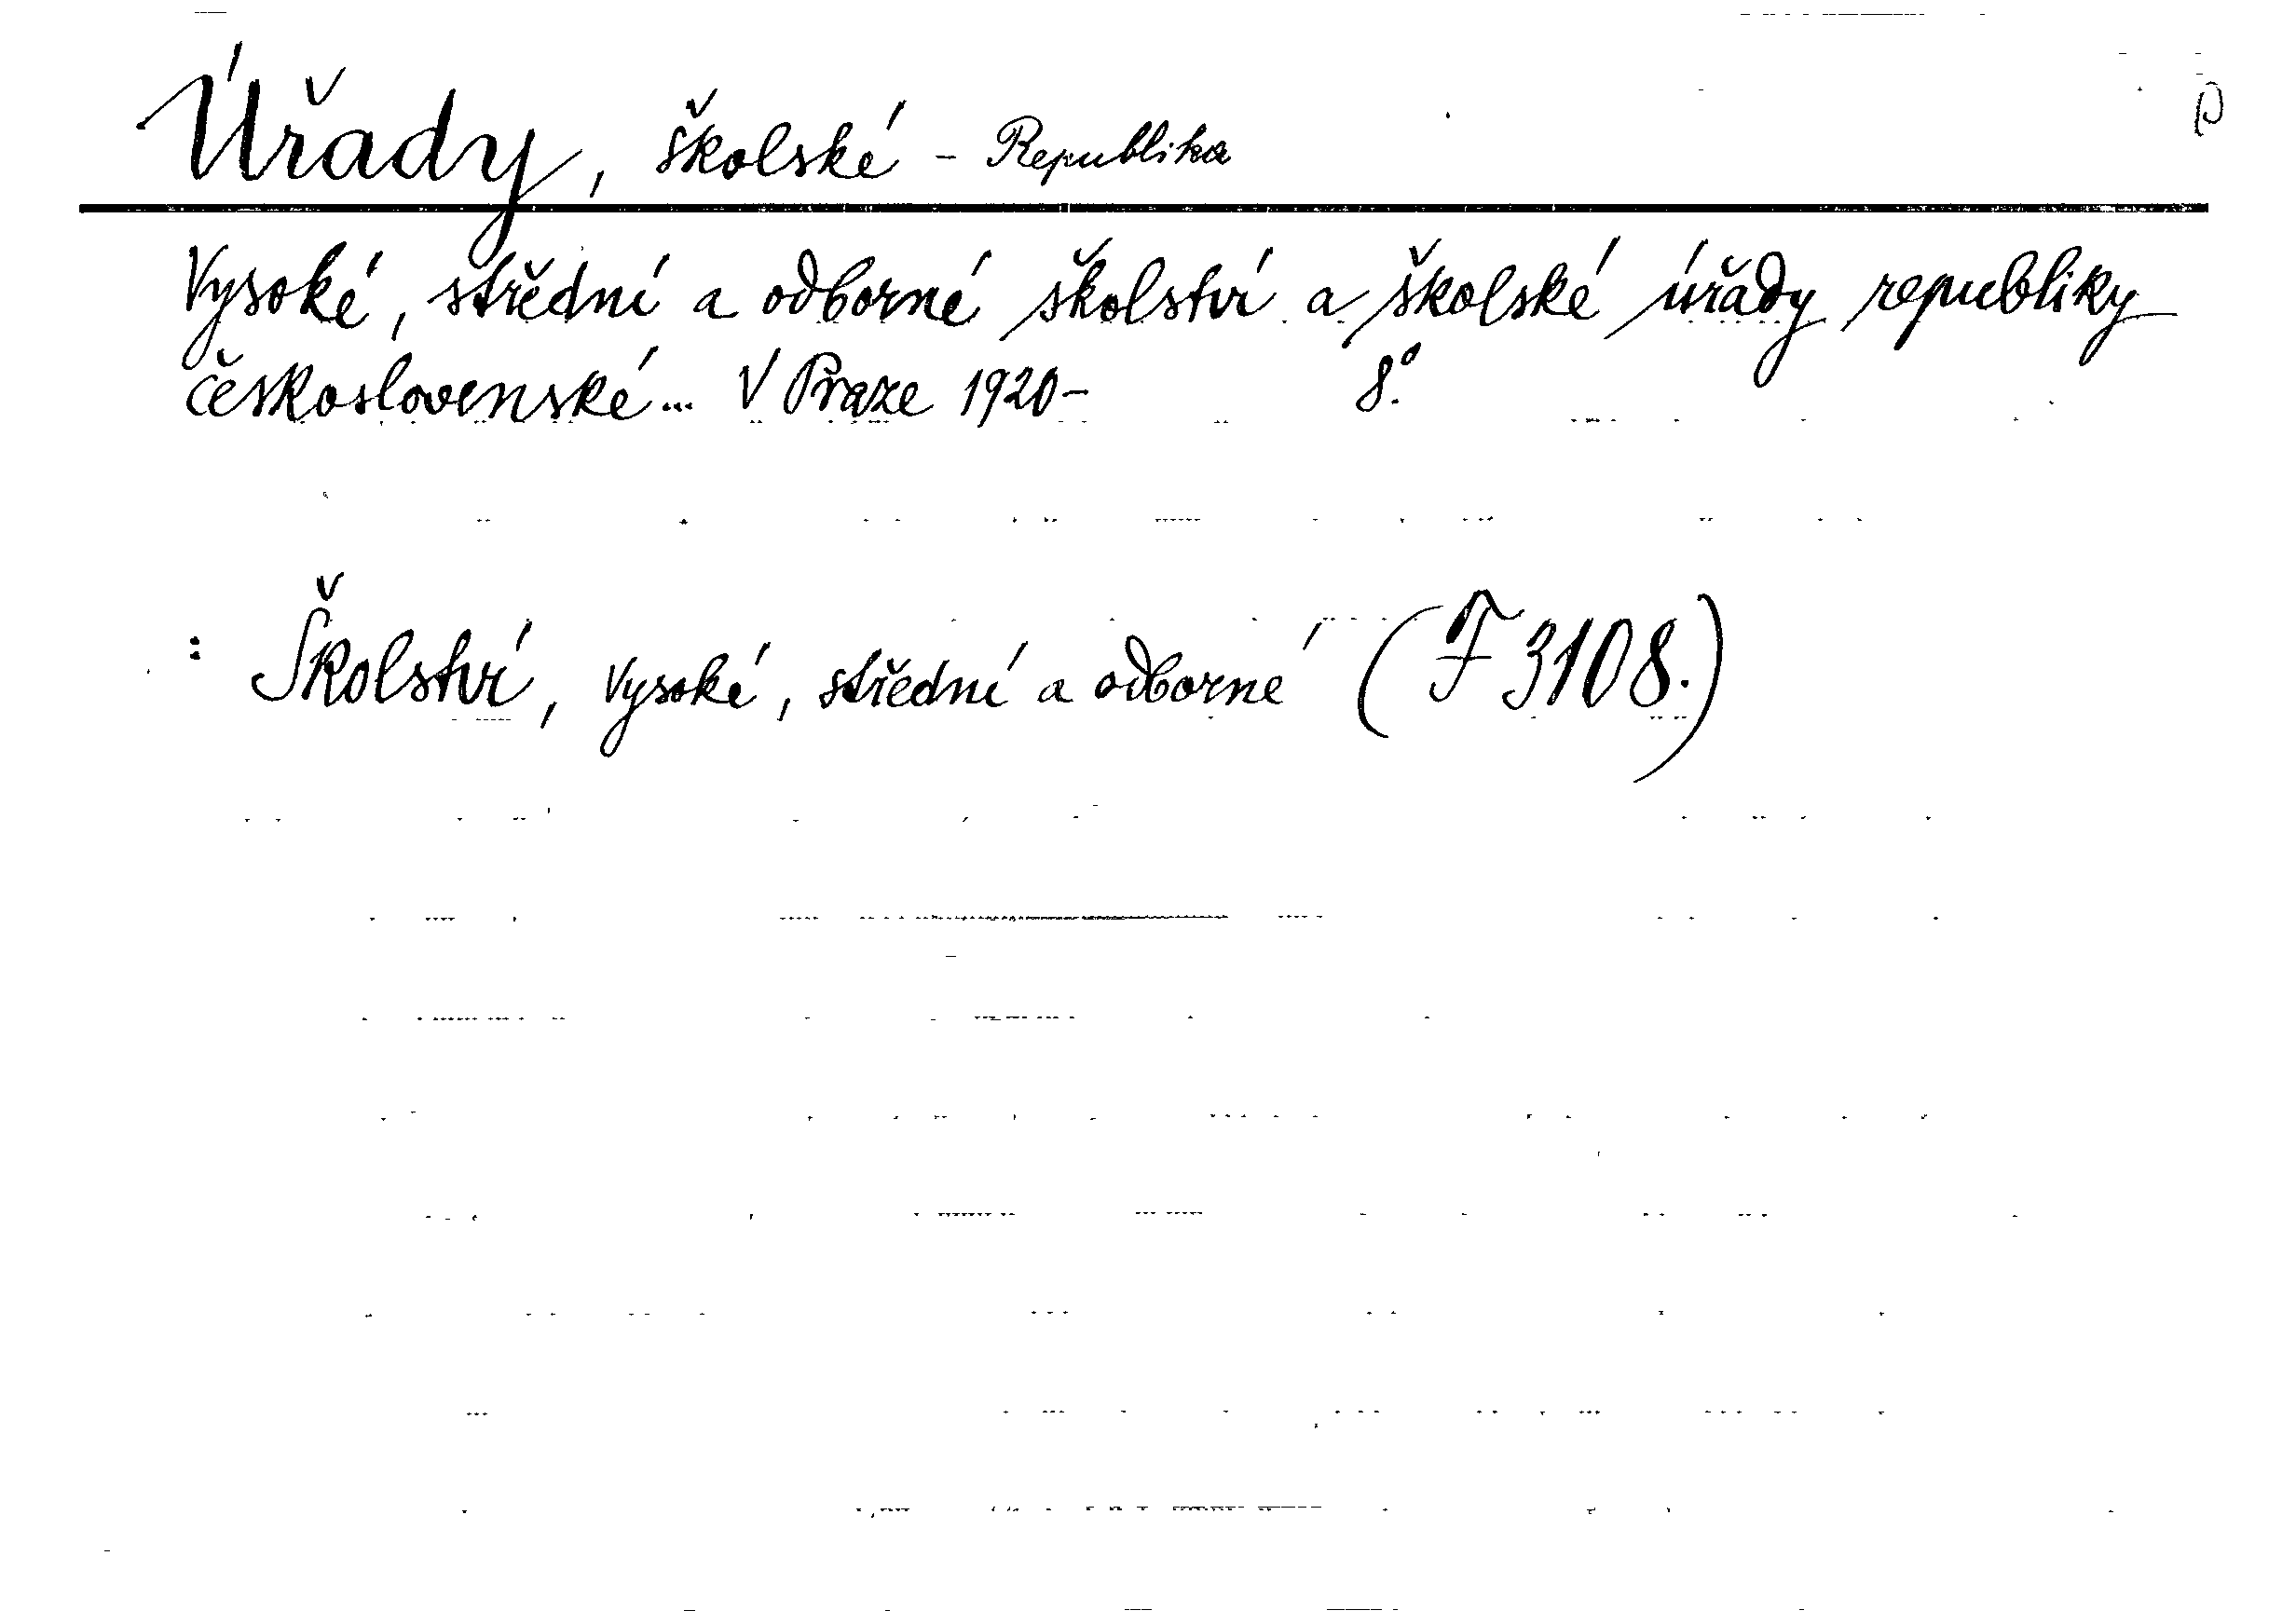 Úřady, školské - Republika
Vysoké, střední a odborné školství a školské úřady republiky
československé... V Praze 1920- 8°.
: Školství, vysoké, střední a odborné (F 3108.)